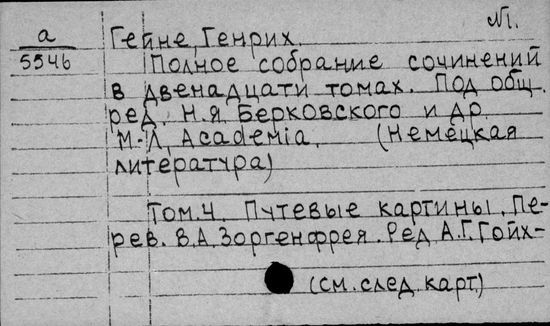 №1.
а
5546
Гейне, Генрих.
Полное собрание сочинений
в двенадцати томах. Под общ.
ред. Н.Я. Берковского и др.
М.-Л, Academia, (Немецкая
литература)
Том.4. Путевые картины. Пе-
рев. В.А. Зоргенфрея. Ред А.Г. Гойх-
(см. след. карт.)